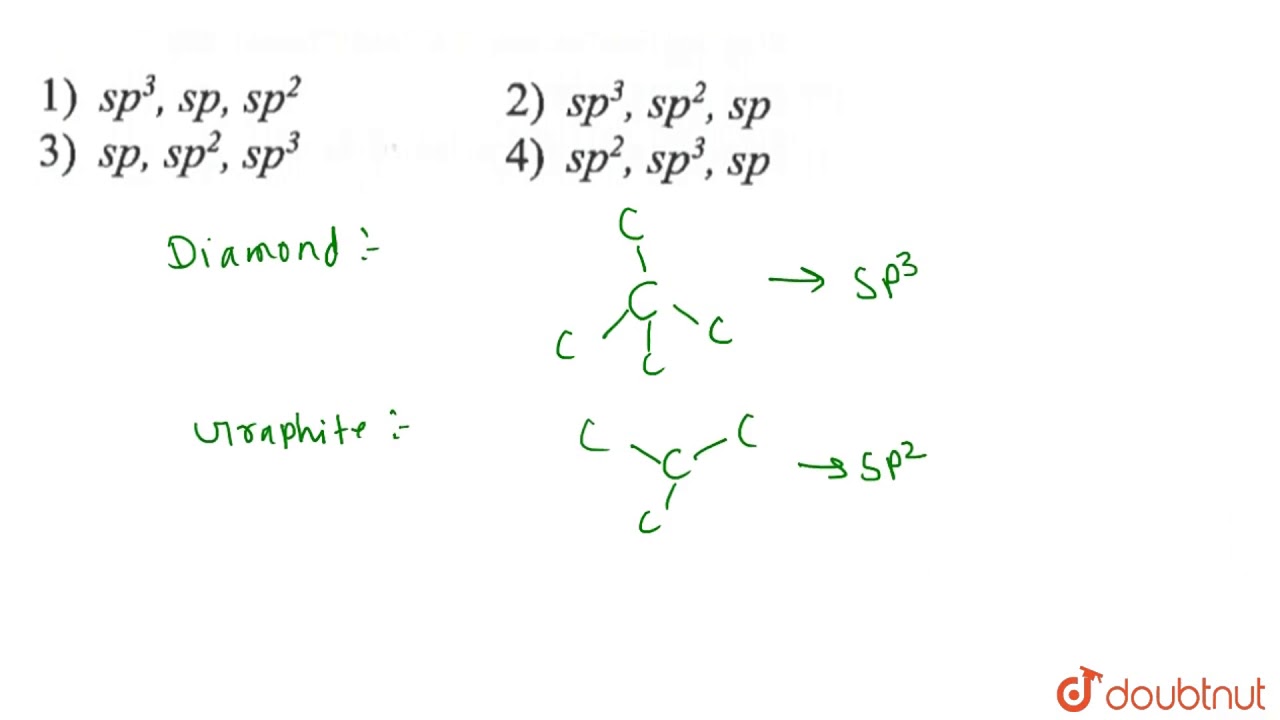 1) sp³, sp, sp² 2) sp³, sp², sp
3) sp, sp², sp³ 4) sp², sp³, sp
Diamond :-
C
C
C C
C
→ SP³
Graphite :-
C C
C
C
→ SP²
doubtnut